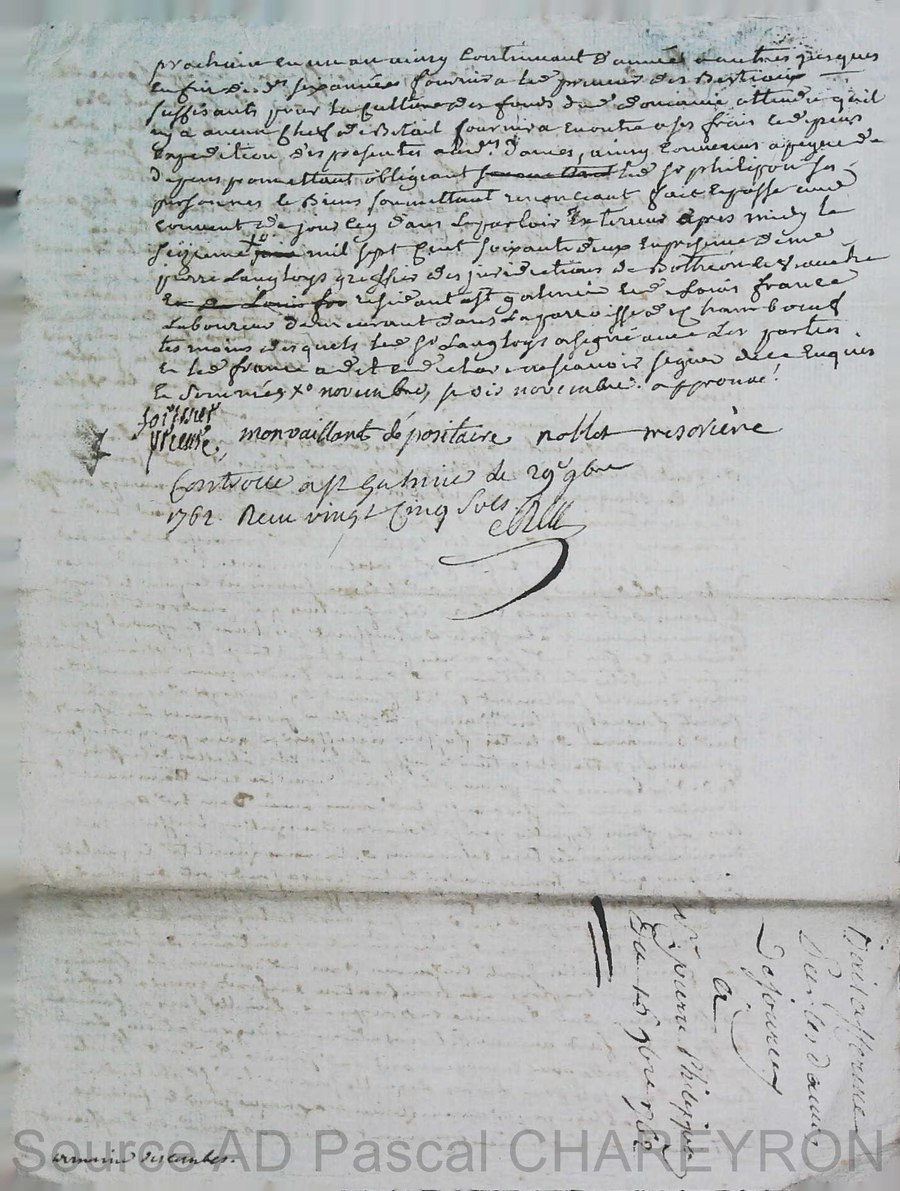 prochaine en un an ainsy Continuant d'année a autres jusques
En fin des dts six années fournira led preneur des Bestiaux
suffisants pour la Culture des fonds dud domaine attendu qu'il
n'y a aucun Chef de Betail fournira En outre a ses frais
Expedition des presentes auxd. dames, ainsy Convenus a peyne de
depens promettant obligeant led sr philipon ses
personnes et Biens soumettant renonceant fait et passé aud
Couvent de jourcey dans Le parloir Exterieur apres midy le
mil sept Cent soixante deux En presence de me
pierre Langloys greffier des juridictions de
residant a st galmier Et de Louis france
Laboureur demeurant dans La parroisse de Chambœuf
tesmoins desquels led sr Langloys a signé avec Les parties
Et led france a dit Et declaré ne sçavoir signer de ce Enquis
Et Sommés xe novembre, je dis novembre. approuvé.
prieure, monvaillant dépositaire noblet tresoriere
Controllé a st Galmier le 29e 9bre
1762. Receu vingt Cinq Sols
Par les dames
De jourcey
a
Sr pierre Philipon
Du 9bre 1762
Source AD Pascal CHAREYRON